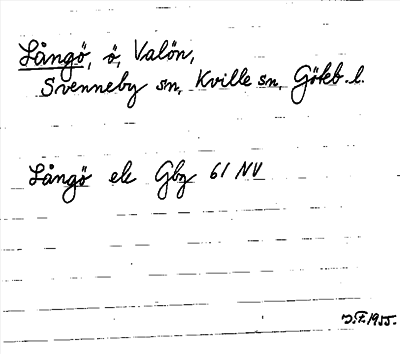 Långö, ö, Valön,
Svenneby sn, Kville sn, Göteb. l.
Långö ek Gbg 61 NV
J.F. 1955.